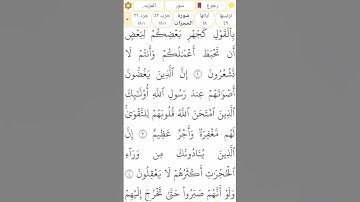 رجوع سور المزيد
ترتيبها آياتها سورة حزب ٥٢ جزء ٢٦
٤٩ ١٨ الحجرات ١-١٨ ١-١٨
بِٱلْقَوْلِ كَجَهْرِ بَعْضِكُمْ لِبَعْضٍ
أَن تَحْبَطَ أَعْمَٰلُكُمْ وَأَنتُمْ لَا
تَشْعُرُونَ ٢ إِنَّ ٱلَّذِينَ يَغُضُّونَ
أَصْوَٰتَهُمْ عِندَ رَسُولِ ٱللَّهِ أُو۟لَٰٓئِكَ
ٱلَّذِينَ ٱمْتَحَنَ ٱللَّهُ قُلُوبَهُمْ لِلتَّقْوَىٰ
لَهُم مَّغْفِرَةٌ وَأَجْرٌ عَظِيمٌ ٣ إِنَّ
ٱلَّذِينَ يُنَادُونَكَ مِن وَرَآءِ
ٱلْحُجُرَٰتِ أَكْثَرُهُمْ لَا يَعْقِلُونَ ٤
وَلَوْ أَنَّهُمْ صَبَرُوا۟ حَتَّىٰ تَخْرُجَ إِلَيْهِمْ